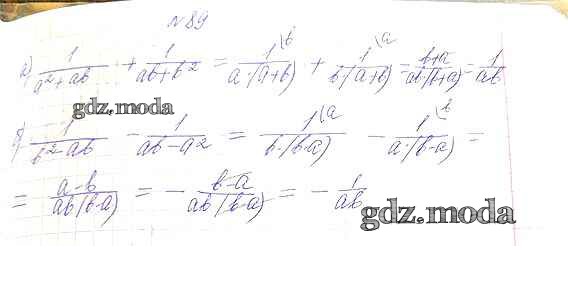 №89
а) 1/(a²+ab) + 1/(ab+b²) = 1\b/(a·(a+b)) + 1\a/(b·(a+b)) = (b+a)/(ab(b+a)) = 1/ab
gdz.moda
б) 1/(b²-ab) - 1/(ab-a²) = 1\a/(b·(b-a)) - 1\b/(a·(b-a)) =
= (a-b)/(ab(b-a)) = - (b-a)/(ab(b-a)) = - 1/ab
gdz.moda